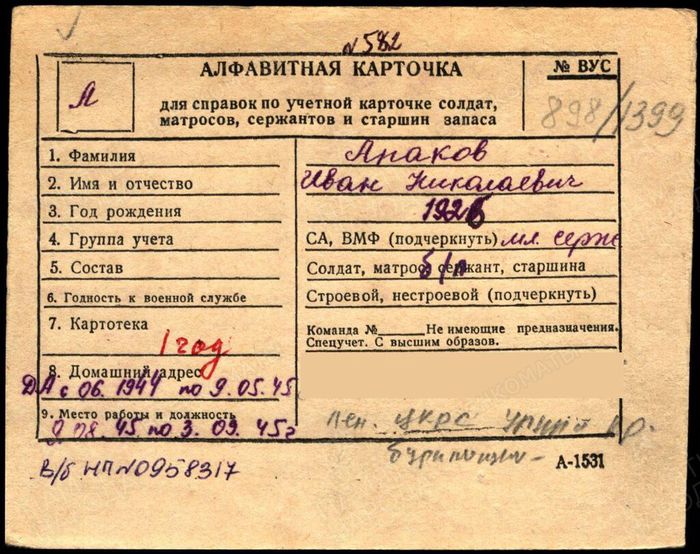 №582
АЛФАВИТНАЯ КАРТОЧКА
№ ВУС
А
для справок по учетной карточке солдат,
матросов, сержантов и старшин запаса
898/1399
1. Фамилия
Апаков
2. Имя и отчество
Иван Николаевич
3. Год рождения
1926
4. Группа учета
СА, ВМФ (подчеркнуть) мл. серж
5. Состав
Солдат, матрос, сержант, старшина
б/п
6. Годность к военной службе
Строевой, нестроевой (подчеркнуть)
7. Картотека
Команда №______Не имеющие предназначения.
Спецучет. С высшим образов.
1 год
8. Домашний адрес
ДА с 06. 1944 по 9.05.45
9. Место работы и должность
9.08.45 по 3.09.45г
Лен. УКРС
В/б НП№0958317
А-1531